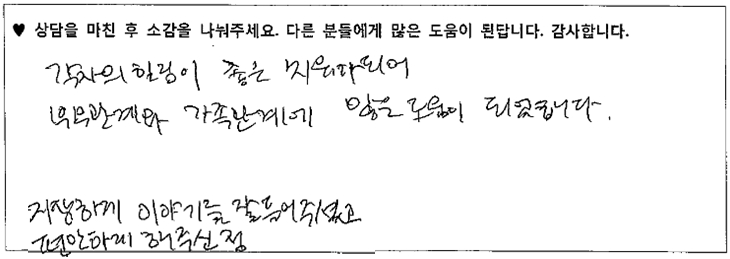 ♥ 상담을 마친 후 소감을 나눠주세요. 다른 분들에게 많은 도움이 된답니다. 감사합니다.
각자의 힐링이 좋은 시너지되어
부부관계와 가족관계에 많은 도움이 되었습니다.
자상하게 이야기를 잘 들어주셨고
편안하게 해주신 점